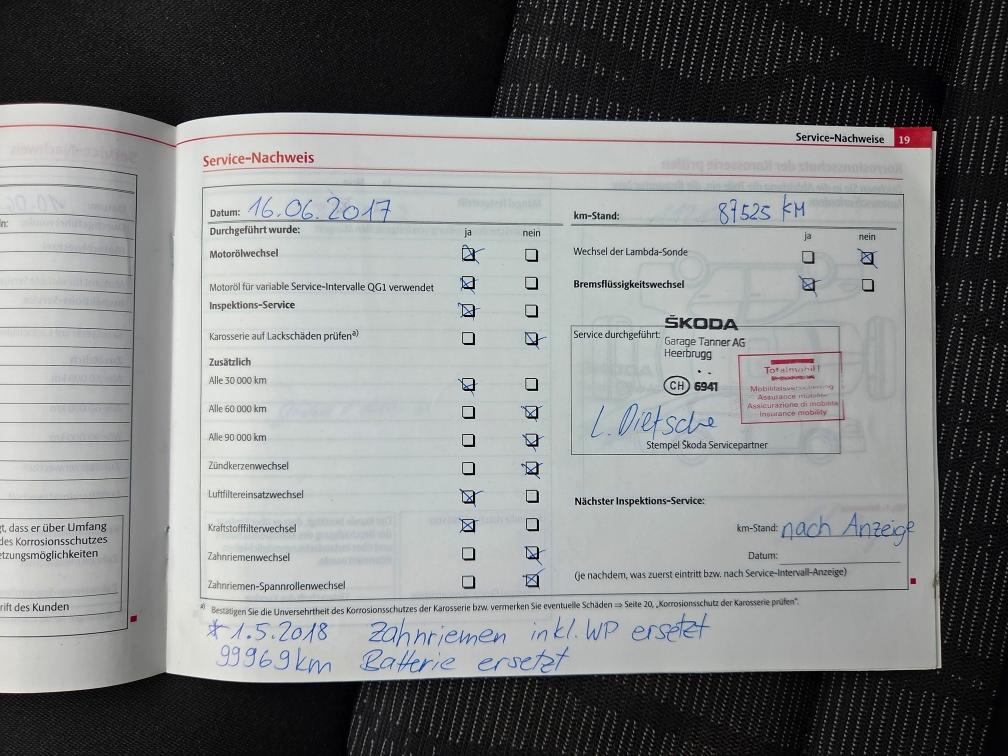 Service-Nachweise 19
Service-Nachweis
Datum: 16.06.2017
km-Stand: 87525 KM
Durchgeführt wurde: ja nein
ja nein
Motorölwechsel
Wechsel der Lambda-Sonde
Motoröl für variable Service-Intervalle QG1 verwendet
Bremsflüssigkeitswechsel
Inspektions-Service
Karosserie auf Lackschäden prüfen a)
Zusätzlich
Alle 30 000 km
Alle 60 000 km
Alle 90 000 km
Zündkerzenwechsel
Luftfiltereinsatzwechsel
Kraftstofffilterwechsel
Zahnriemenwechsel
Zahnriemen-Spannrollenwechsel
Service durchgeführt:
ŠKODA
Garage Tanner AG
Heerbrugg
CH 6941
Totalmobil!
Mobilitätsversicherung
Assurance mobilité
Assicurazione di mobilità
Insurance mobility
L. Dietsche
Stempel Škoda Servicepartner
Nächster Inspektions-Service:
km-Stand: nach Anzeige
Datum:
(je nachdem, was zuerst eintritt bzw. nach Service-Intervall-Anzeige)
a) Bestätigen Sie die Unversehrtheit des Korrosionsschutzes der Karosserie bzw. vermerken Sie eventuelle Schäden ⇒ Seite 20, „Korrosionsschutz der Karosserie prüfen“.
* 1.5.2018 Zahnriemen inkl. WP ersetzt
99969km Batterie ersetzt
t, dass er über Umfang
des Korrosionsschutzes
etzungsmöglichkeiten
rift des Kunden